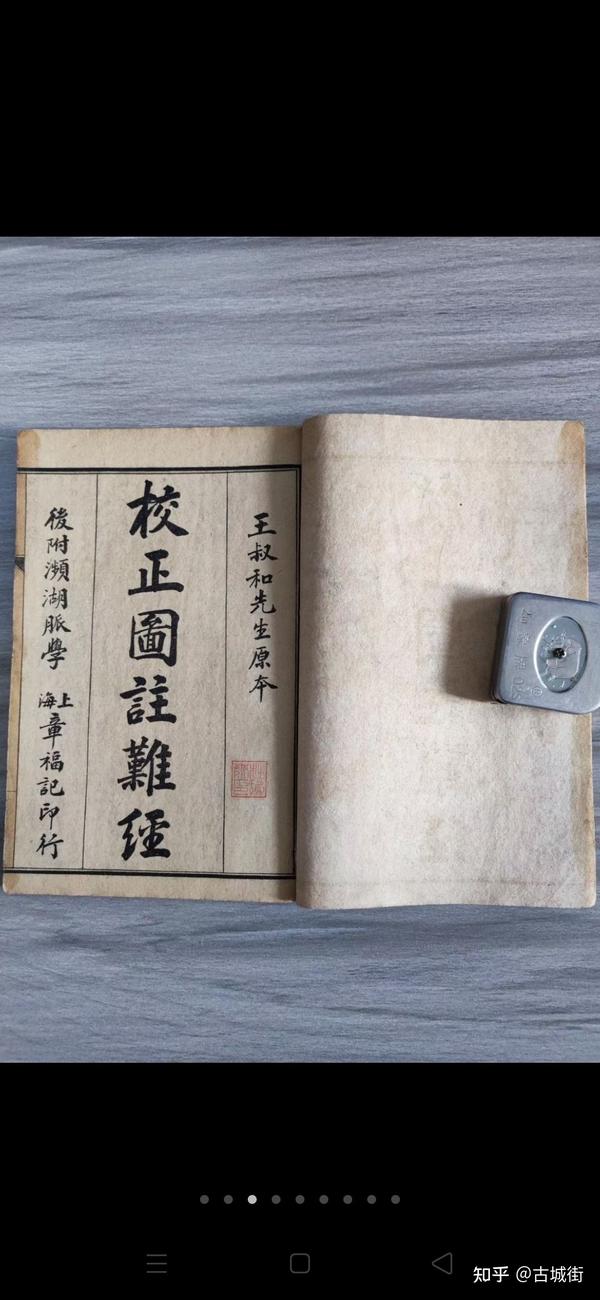 王叔和先生原本
校正圖註難經
後附瀕湖脈學
上海章福記印行
知乎 @古城街